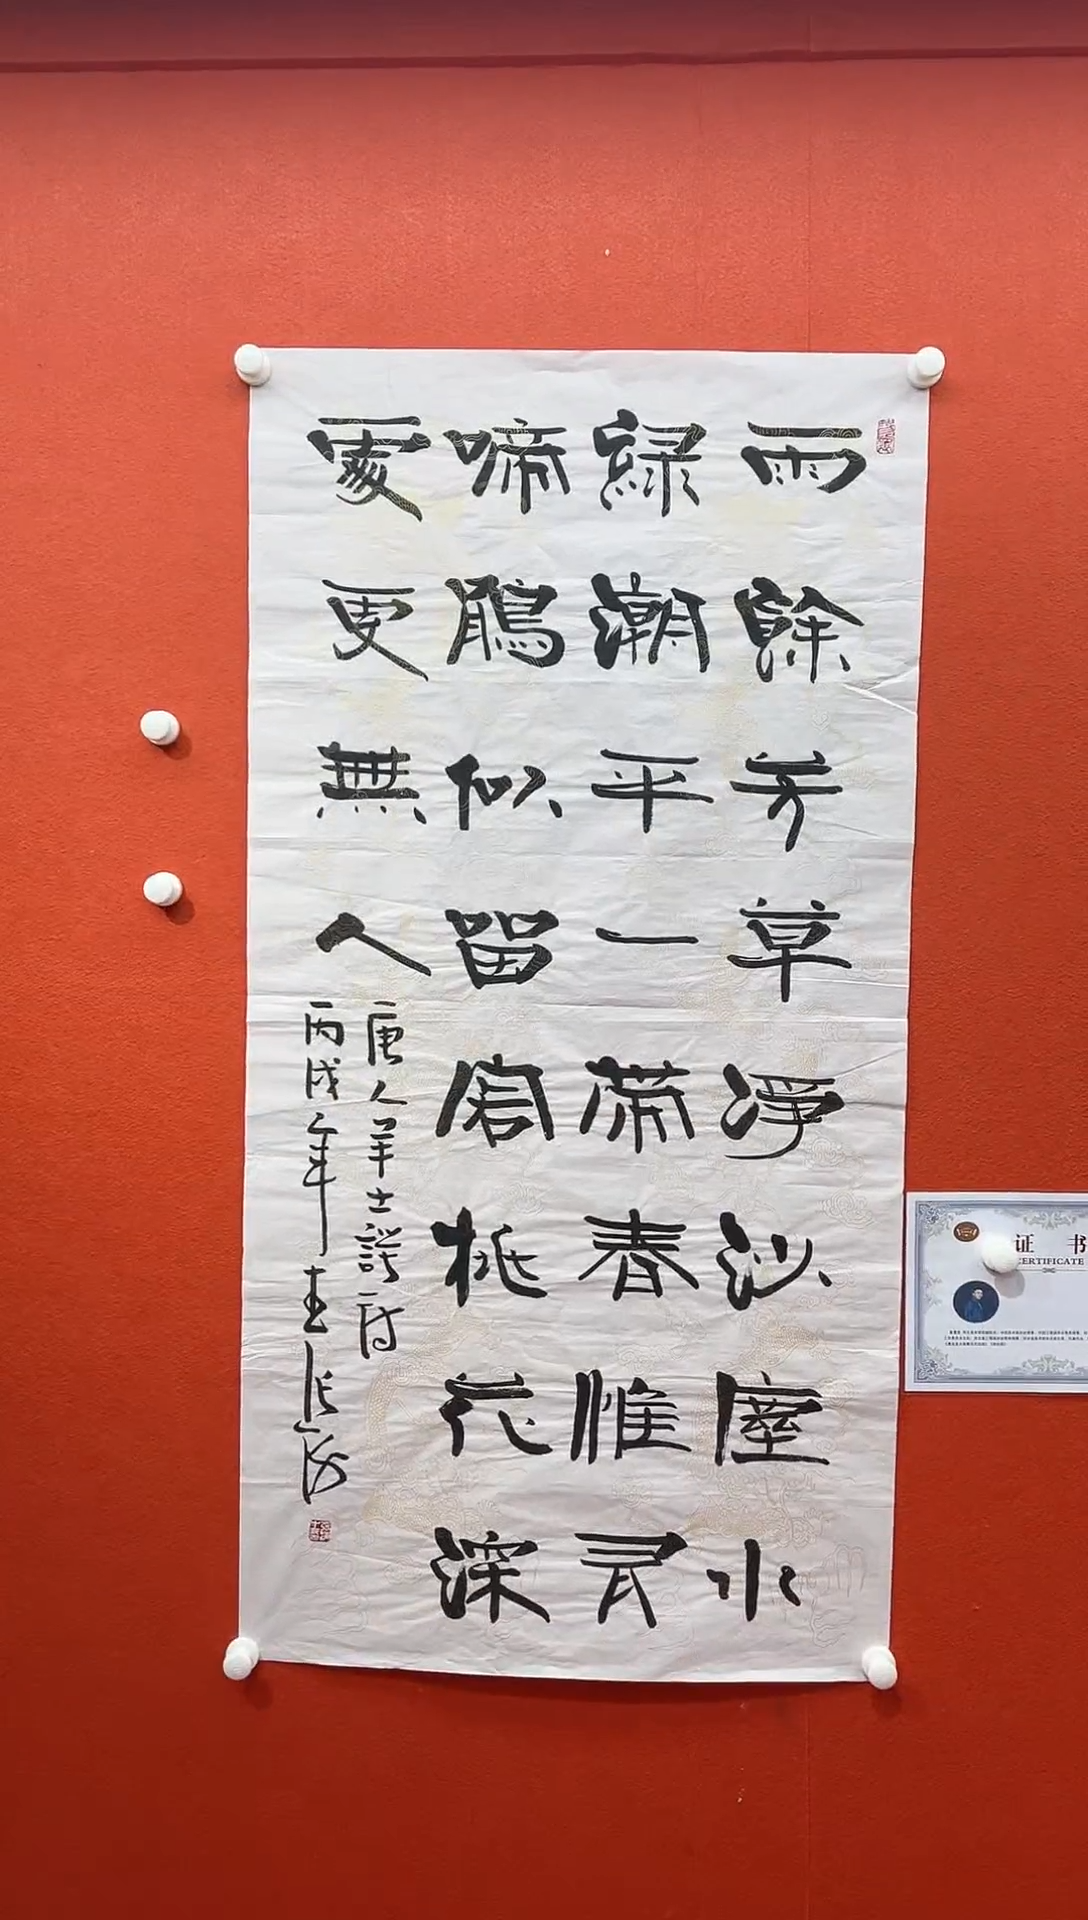 雨餘芳草淨沙塵水
緑潮平一帶春惟有
啼鵑似留客桃花深
處更無人
唐人羊士諤詩
丙戌年
证书
CERTIFICATE